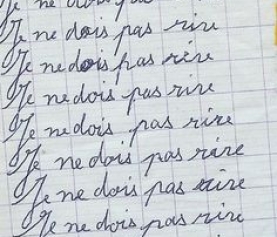 Je ne dois pas
Je ne dois pas rire
Je ne dois pas rire
Je ne dois pas rire
Je ne dois pas rire
Je ne dois pas rire
Je ne dois pas rire
Je ne dois pas rire